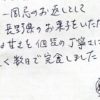 一周忌のお返しとして
長野県のお菓子をいただ
甘さを個包の丁寧さに
く数日で完食しました